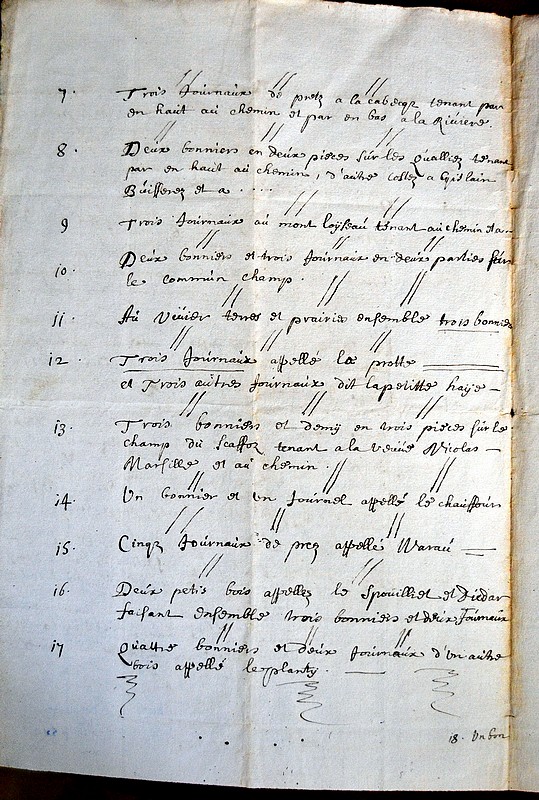 7. Trois Journaux de pretz a la cabecqz tenant par
en haut au chemin et par en bas a la Riviere.
8. Deux bonniers en deux pieces sur les qualliez tenant
par en haut au chemin, d'autre costez a Gislain
Buisseret et a ....
9 Trois Journaux au mont loyseau tenant au chemin et a
10. Deux bonniers et trois Journaux en deux parties sur
le commun champ.
11. Au Vivier terres et prairies ensemble trois bonniers
12 Trois Journaux appellé la protte
et Trois autres Journaux dit la petitte haije
13. Trois bonniers et demij en trois pieces sur le
champ du Scaffoz tenant a la veuve Nicolas
Marsille et au chemin.
14. Un bonnier et un Journel appellé le chauffour
15. Cinqz Journaux de prez appellé Warau
16. Deux petis bois appellez le Spouilliet et Diedar
faisant ensemble trois bonniers et deux Journaux
17 Quattre bonniers et deux Journaux d'un autre
bois appellé le planty.
18. Un bon